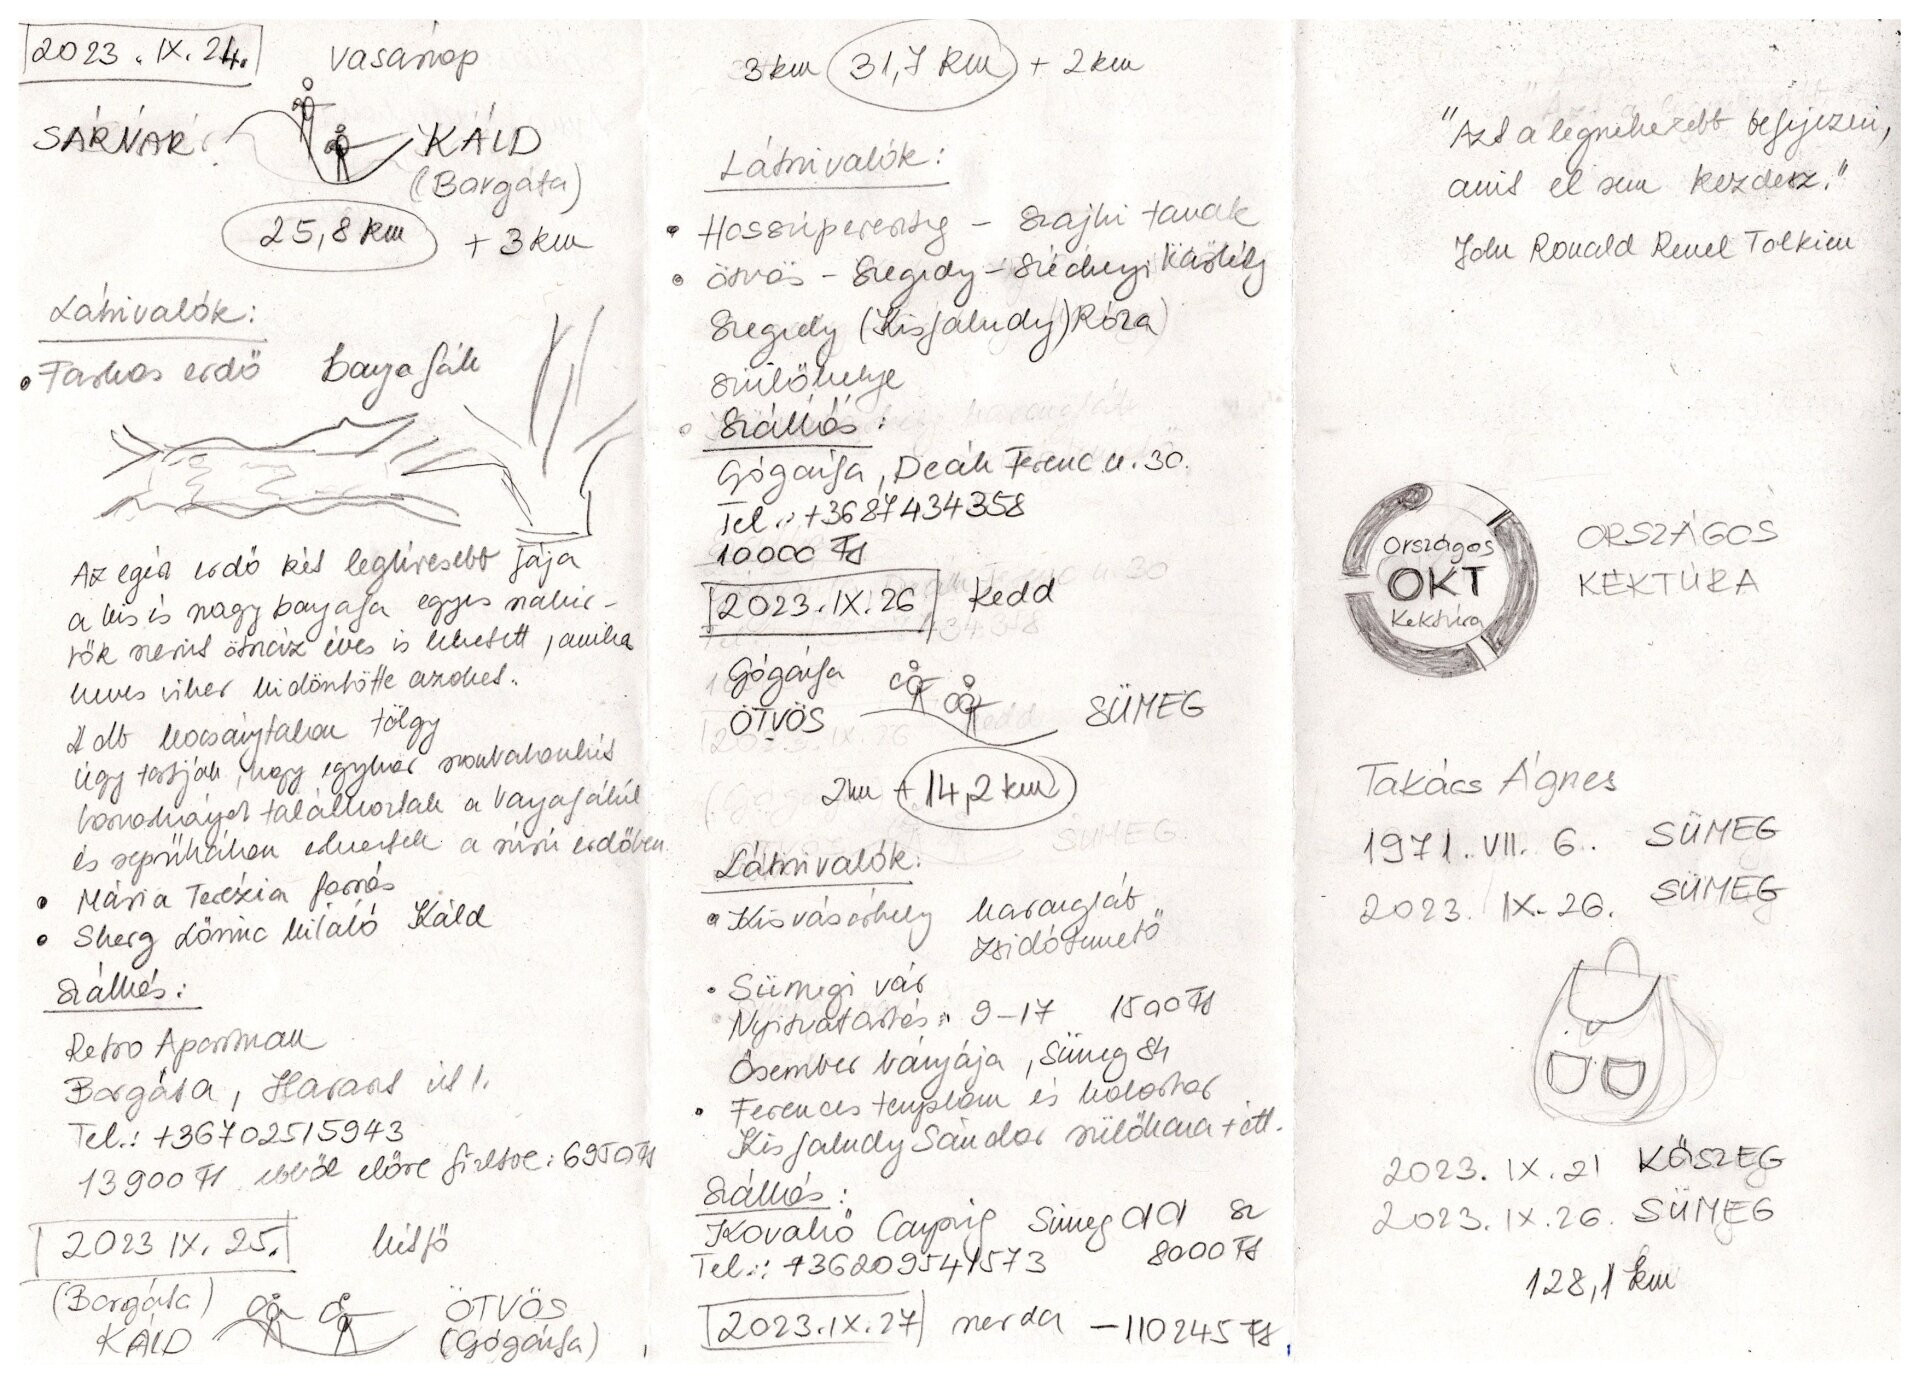 2023. IX. 24. vasárnap
SÁRVÁR KÁLD
(Borgáta)
25,8 km + 3 km
Látnivalók:
• Farkas erdő banyafák
Az egész erdő két leghíresebb fája
a kis és nagy banyafa egyes szakér-
tők szerint ötszáz éves is lehetett, amikor
heves vihar kidöntötte azokat.
2 db kocsánytalan tölgy
úgy tartják, hogy egykor szombatonként
boszorkányok találkoztak a banyafáknál
és seprűháton elmentek a sűrű erdőben
• Mária Terézia forrás
• Sherg Lőrinc kilátó Káld
Szállás:
Retro Apartman
Borgáta, Haraszt út 1.
Tel.: +36702515943
13900 Ft ebből előre fizetve: 6950 Ft
2023 IX. 25. hétfő
(Borgáta) ÖTVÖS
KÁLD (Gógánfa)
3 km 31,7 km + 2 km
Látnivalók:
• Hosszúpereszteg – Szajki tavak
• Ötvös – Szegedy – Széchenyi Kastély
Szegedy (Kisfaludy) Róza
szülőhelye
Szállás:
Gógánfa, Deák Ferenc u. 30.
Tel.: +3687434358
10000 Ft
2023. IX. 26 Kedd
Gógánfa
ÖTVÖS SÜMEG
2 km + 14,2 km
Látnivalók:
• Kisvásárhely harangláb
zsidótemető
• Sümegi vár
Nyitvatartás: 9–17 1500 Ft
Ősember bányája, Sümeg 84
• Ferences templom és kolostor
Kisfaludy Sándor szülőháza + ott.
Szállás:
Kovakő Camping Sümeg
Tel.: +36209541573 8000 Ft
2023. IX. 27 szerda – 110245 Ft
"Azt a legnehezebb befejezni,
amit el sem kezdesz."
John Ronald Reuel Tolkien
Országos
OKT
Kektúra
ORSZÁGOS
KÉKTÚRA
Takács Ágnes
1971. VII. 6. SÜMEG
2023. IX. 26. SÜMEG
2023. IX. 21 KŐSZEG
2023. IX. 26. SÜMEG
128,1 km